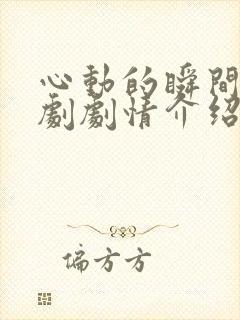 心動的瞬間
劇劇情介紹
偏方方